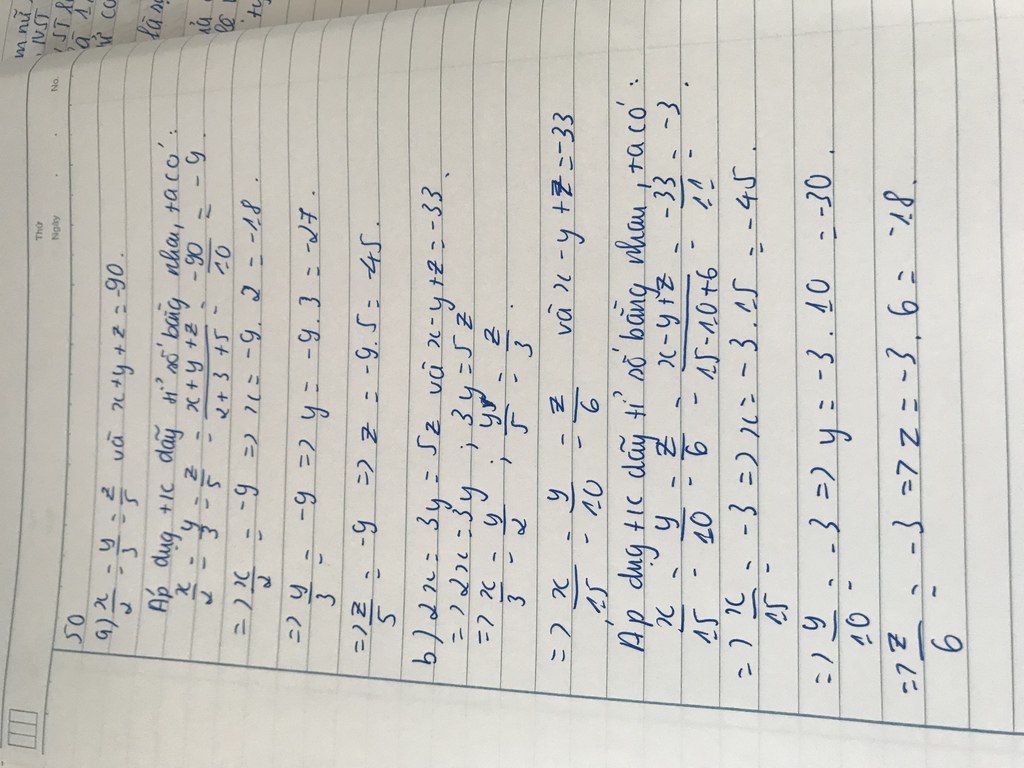 Thứ
Ngày
No.
50
a) x/2 = y/3 = z/5 và x+y+z = -90.
Áp dụng t/c dãy tỉ số bằng nhau, ta có:
x/2 = y/3 = z/5 = (x+y+z)/(2+3+5) = -90/10 = -9
=> x/2 = -9 => x = -9.2 = -18.
=> y/3 = -9 => y = -9.3 = -27.
=> z/5 = -9 => z = -9.5 = -45.
b) 2x = 3y = 5z và x-y+z = -33.
=> 2x = 3y ; 3y = 5z
=> x/3 = y/2 ; y/5 = z/3.
=> x/15 = y/10 = z/6 và x-y+z = -33
Áp dụng t/c dãy tỉ số bằng nhau, ta có:
x/15 = y/10 = z/6 = (x-y+z)/(15-10+6) = -33/11 = -3.
=> x/15 = -3 => x = -3.15 = -45.
=> y/10 = -3 => y = -3.10 = -30.
=> z/6 = -3 => z = -3.6 = -18.